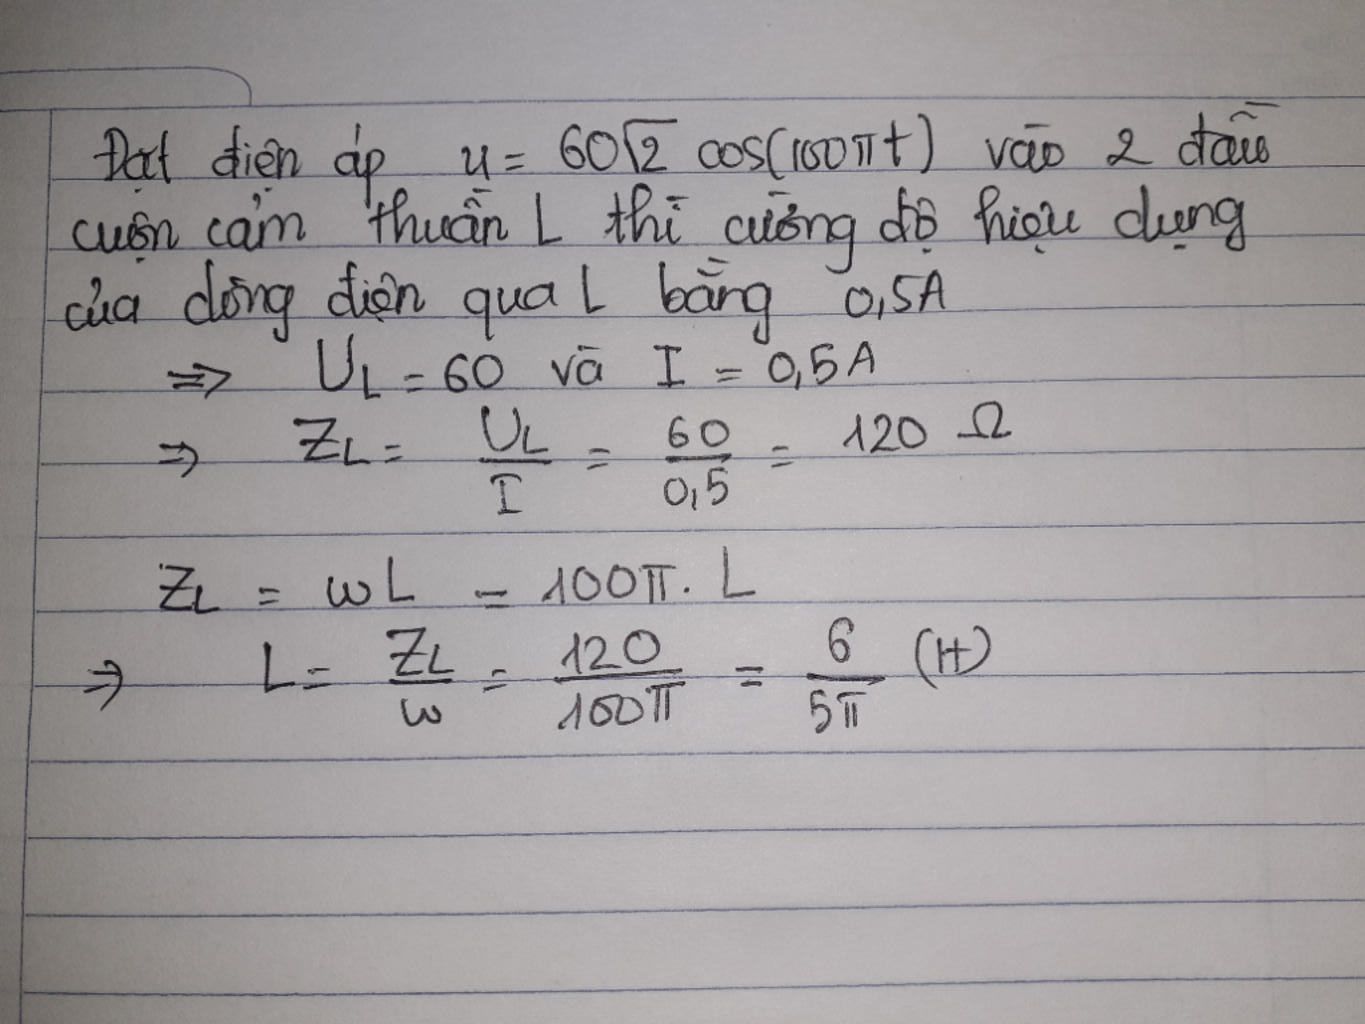 Đạt điện áp u = 60√2 cos(100πt) vào 2 đầu
cuộn cảm thuần L thì cường độ hiệu dụng
của dòng điện qua L bằng 0,5A
=> U_L = 60 và I = 0,5A
=> Z_L = U_L/I = 60/0,5 = 120 Ω
Z_L = ωL = 100π. L
=> L = Z_L/ω = 120/100π = 6/5π (H)